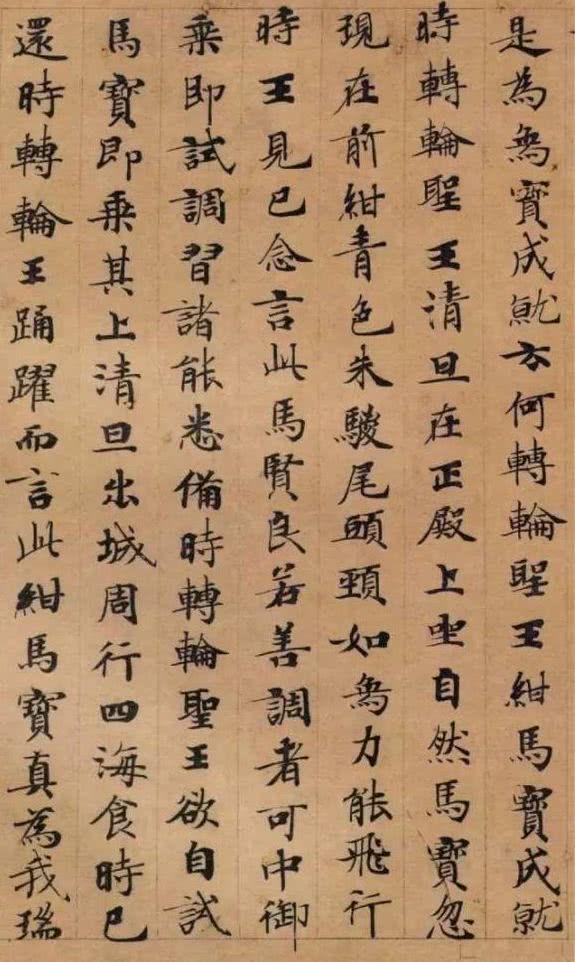 是為鳥寶成就云何轉輪聖王紺馬寶成就
時轉輪聖王清旦在正殿上坐自然馬寶忽
現在前紺青色朱騣尾頭頸如鳥力能飛行
時王見已念言此馬賢良若善調者可中御
乘即試調習諸能悉備時轉輪聖王欲自試
馬寶即乘其上清旦出城周行四海食時已
還時轉輪王踊躍而言此紺馬寶真為我瑞